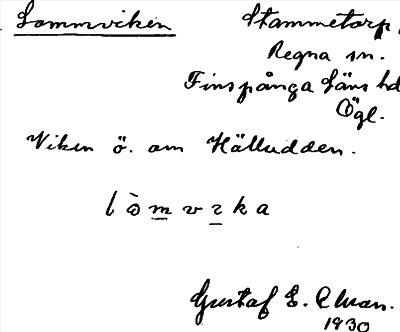 Lommviken Stammetorp,
Regna sn.
Finspånga läns hd
Ögl.
Viken ö. om Hälludden.
Gustaf E.
1930